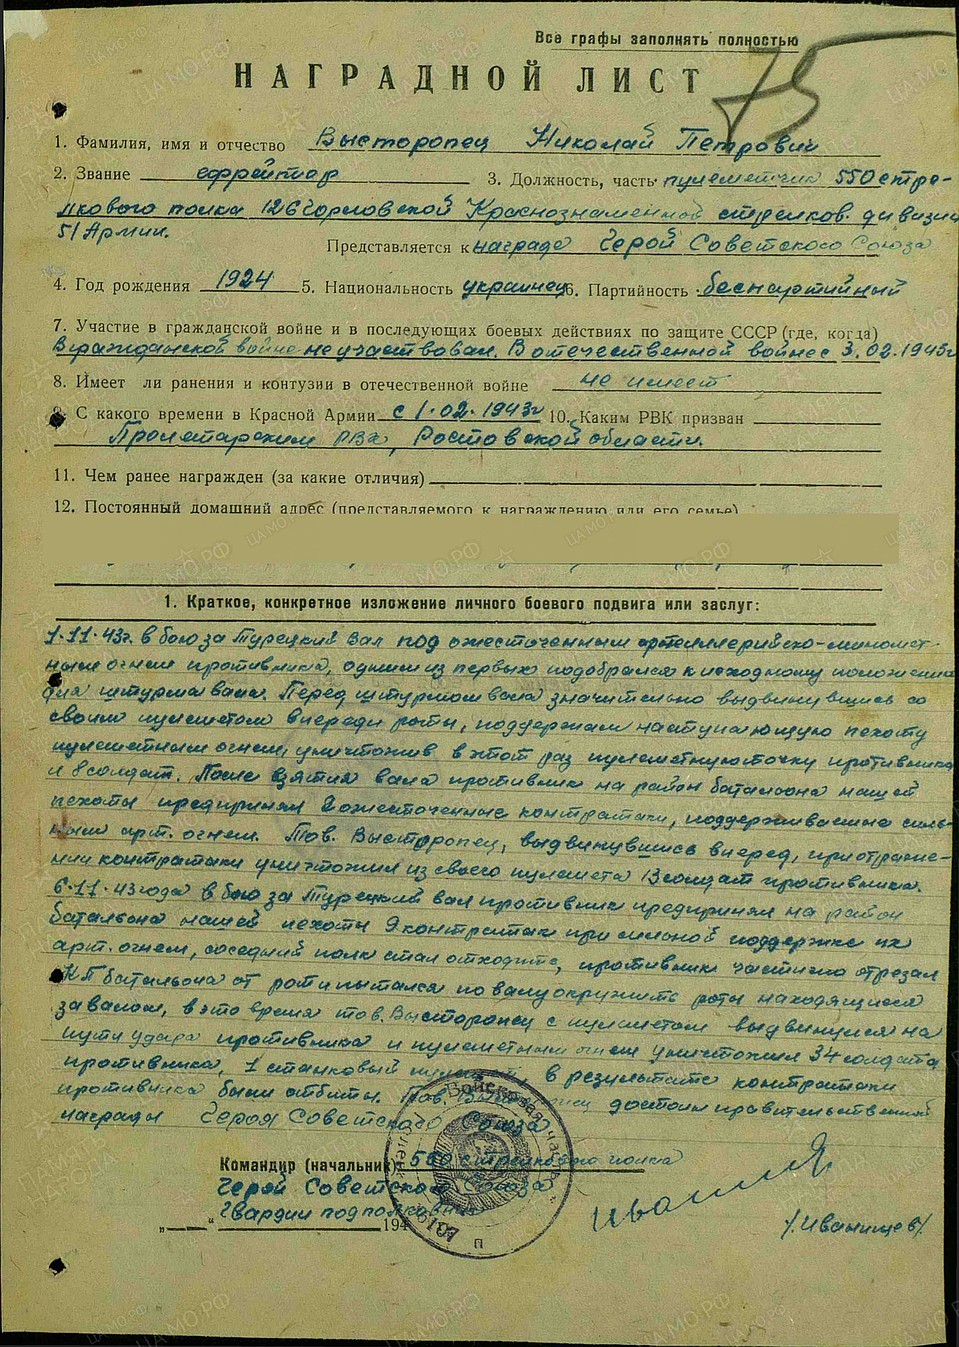 Все графы заполнять полностью
75
НАГРАДНОЙ ЛИСТ
1. Фамилия, имя и отчество Высторопец Николай Петрович
2. Звание ефрейтор 3. Должность, часть пулеметчик 550 стре-
лкового полка 126 Горловской Краснознаменной стрелков. дивизии
51 Армии.
Представляется к награде Герой Советского Союза
4. Год рождения 1924 5. Национальность украинец 6. Партийность беспартийный
7. Участие в гражданской войне и в последующих боевых действиях по защите СССР (где, когда)
В гражданской войне не участвовал. В отечественной войне с 3.02.1943г
8. Имеет ли ранения и контузии в отечественной войне не имеет
9. С какого времени в Красной Армии с 1.02.1943г 10. Каким РВК призван
Пролетарским РВК, Ростовской области.
11. Чем ранее награжден (за какие отличия)
12. Постоянный домашний адрес (представляемого к награждению или его семье)
1. Краткое, конкретное изложение личного боевого подвига или заслуг:
1.11.43г. в бою за Турецкий вал под ожесточенным артиллерийско-миномет-
ным огнем противника, одним из первых подобрался к исходному положению
для штурма вала. Перед штурмом вала значительно выдвинувшись со
своим пулеметом впереди роты, поддержал наступающую пехоту
пулеметным огнем, уничтожив в этот раз пулеметную точку противника
и 8 солдат. После взятия вала противник на район батальона нашей
пехоты предпринял 2 ожесточенные контратаки, поддерживаемые силь-
ным арт. огнем. Тов. Высторопец, выдвинувшись вперед, при отраже-
нии контратаки уничтожил из своего пулемета 13 солдат противника.
6.11.43 года в бою за Турецкий вал противник предпринял на район
батальона нашей пехоты 9 контратак при сильной поддержке их
арт. огнем, соседний полк стал отходить, противник частично отрезал
КП батальона от рот и пытался по валу окружить роты находящиеся
за валом, в это время тов. Высторопец с пулеметом выдвинулся на
пути удара противника и пулеметным огнем уничтожил 34 солдата
противника, 1 станковый в результате контратаки
противника были отбиты. Тов. достоин правительственной
награды Героя Советского Союза
Войсковая часть
Командир (начальник) 550 стрелкового полка
Герой Советского Союза
Гвардии подполковник
„ — “ 194
/Иванищев/